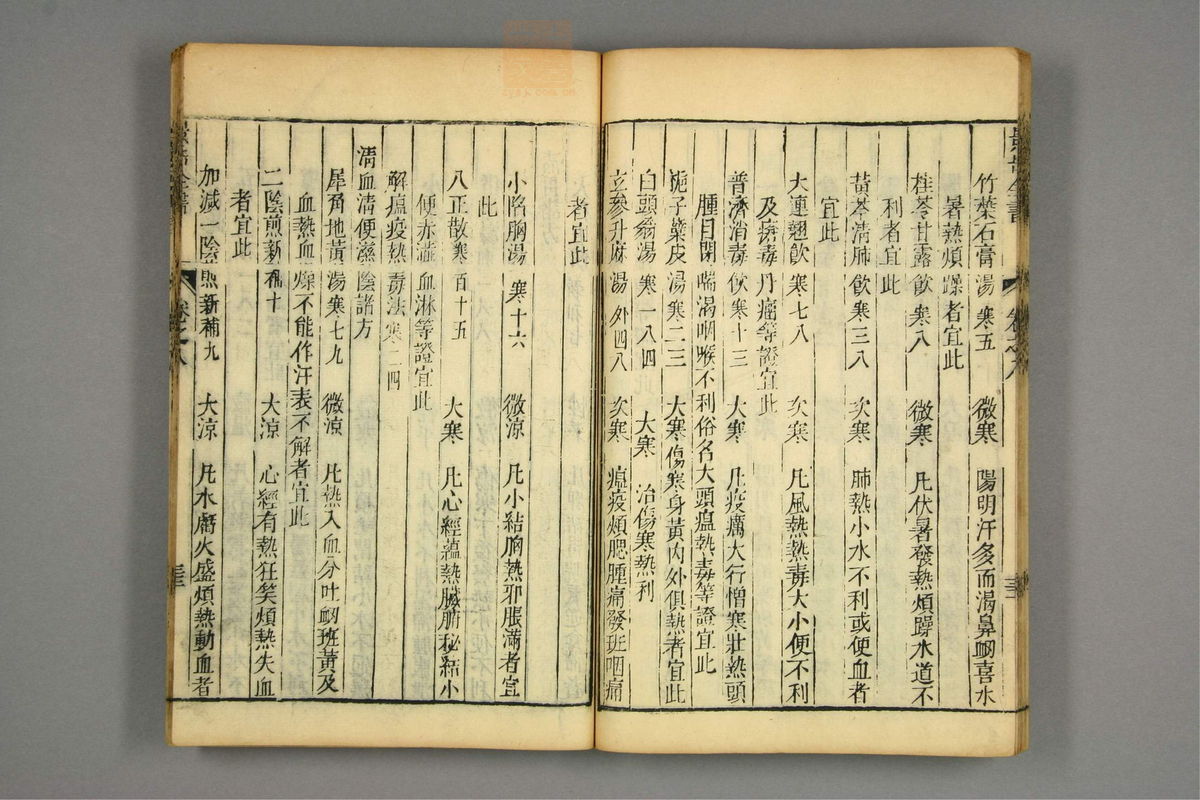 竹葉石膏湯 寒五 微寒 陽明汗多而渴鼻衂喜水
暑熱煩躁者宜此
桂苓甘露飲 寒八 微寒 凡伏暑發熱煩躁水道不
利者宜此
黃芩清肺飲 寒三八 次寒 肺熱小水不利或便血者
宜此
大連翹飲 寒七八 次寒 凡風熱熱毒大小便不利
及痘毒丹瘤等證宜此
普濟消毒飲 寒十三 大寒 凡疫癘大行憎寒壯熱頭
腫目閉喘渴咽喉不利俗名大頭瘟熱毒等證宜此
梔子蘗皮湯 寒二三 大寒 傷寒身黃內外俱熱者宜此
白頭翁湯 寒一八四 大寒 治傷寒熱利
玄參升麻湯 外四八 次寒 瘟疫煩腮腫痛發班咽痛
者宜此
小陷胸湯 寒十六 微涼 凡小結胸熱邪脹滿者宜
此
八正散 寒百十五 大寒 凡心經蘊熱臟腑秘結小
便赤澁血淋等證宜此
解瘟疫熱毒法 寒二四
清血清便滋陰諸方
犀角地黃湯 寒七九 微涼 凡熱入血分吐衂班黃及
血熱血燥不能作汗表不解者宜此
二陰煎 新補十 大涼 心經有熱狂笑煩熱失血
者宜此
加減一陰煎 新補九 大涼 凡水虧火盛煩熱動血者
卷之八